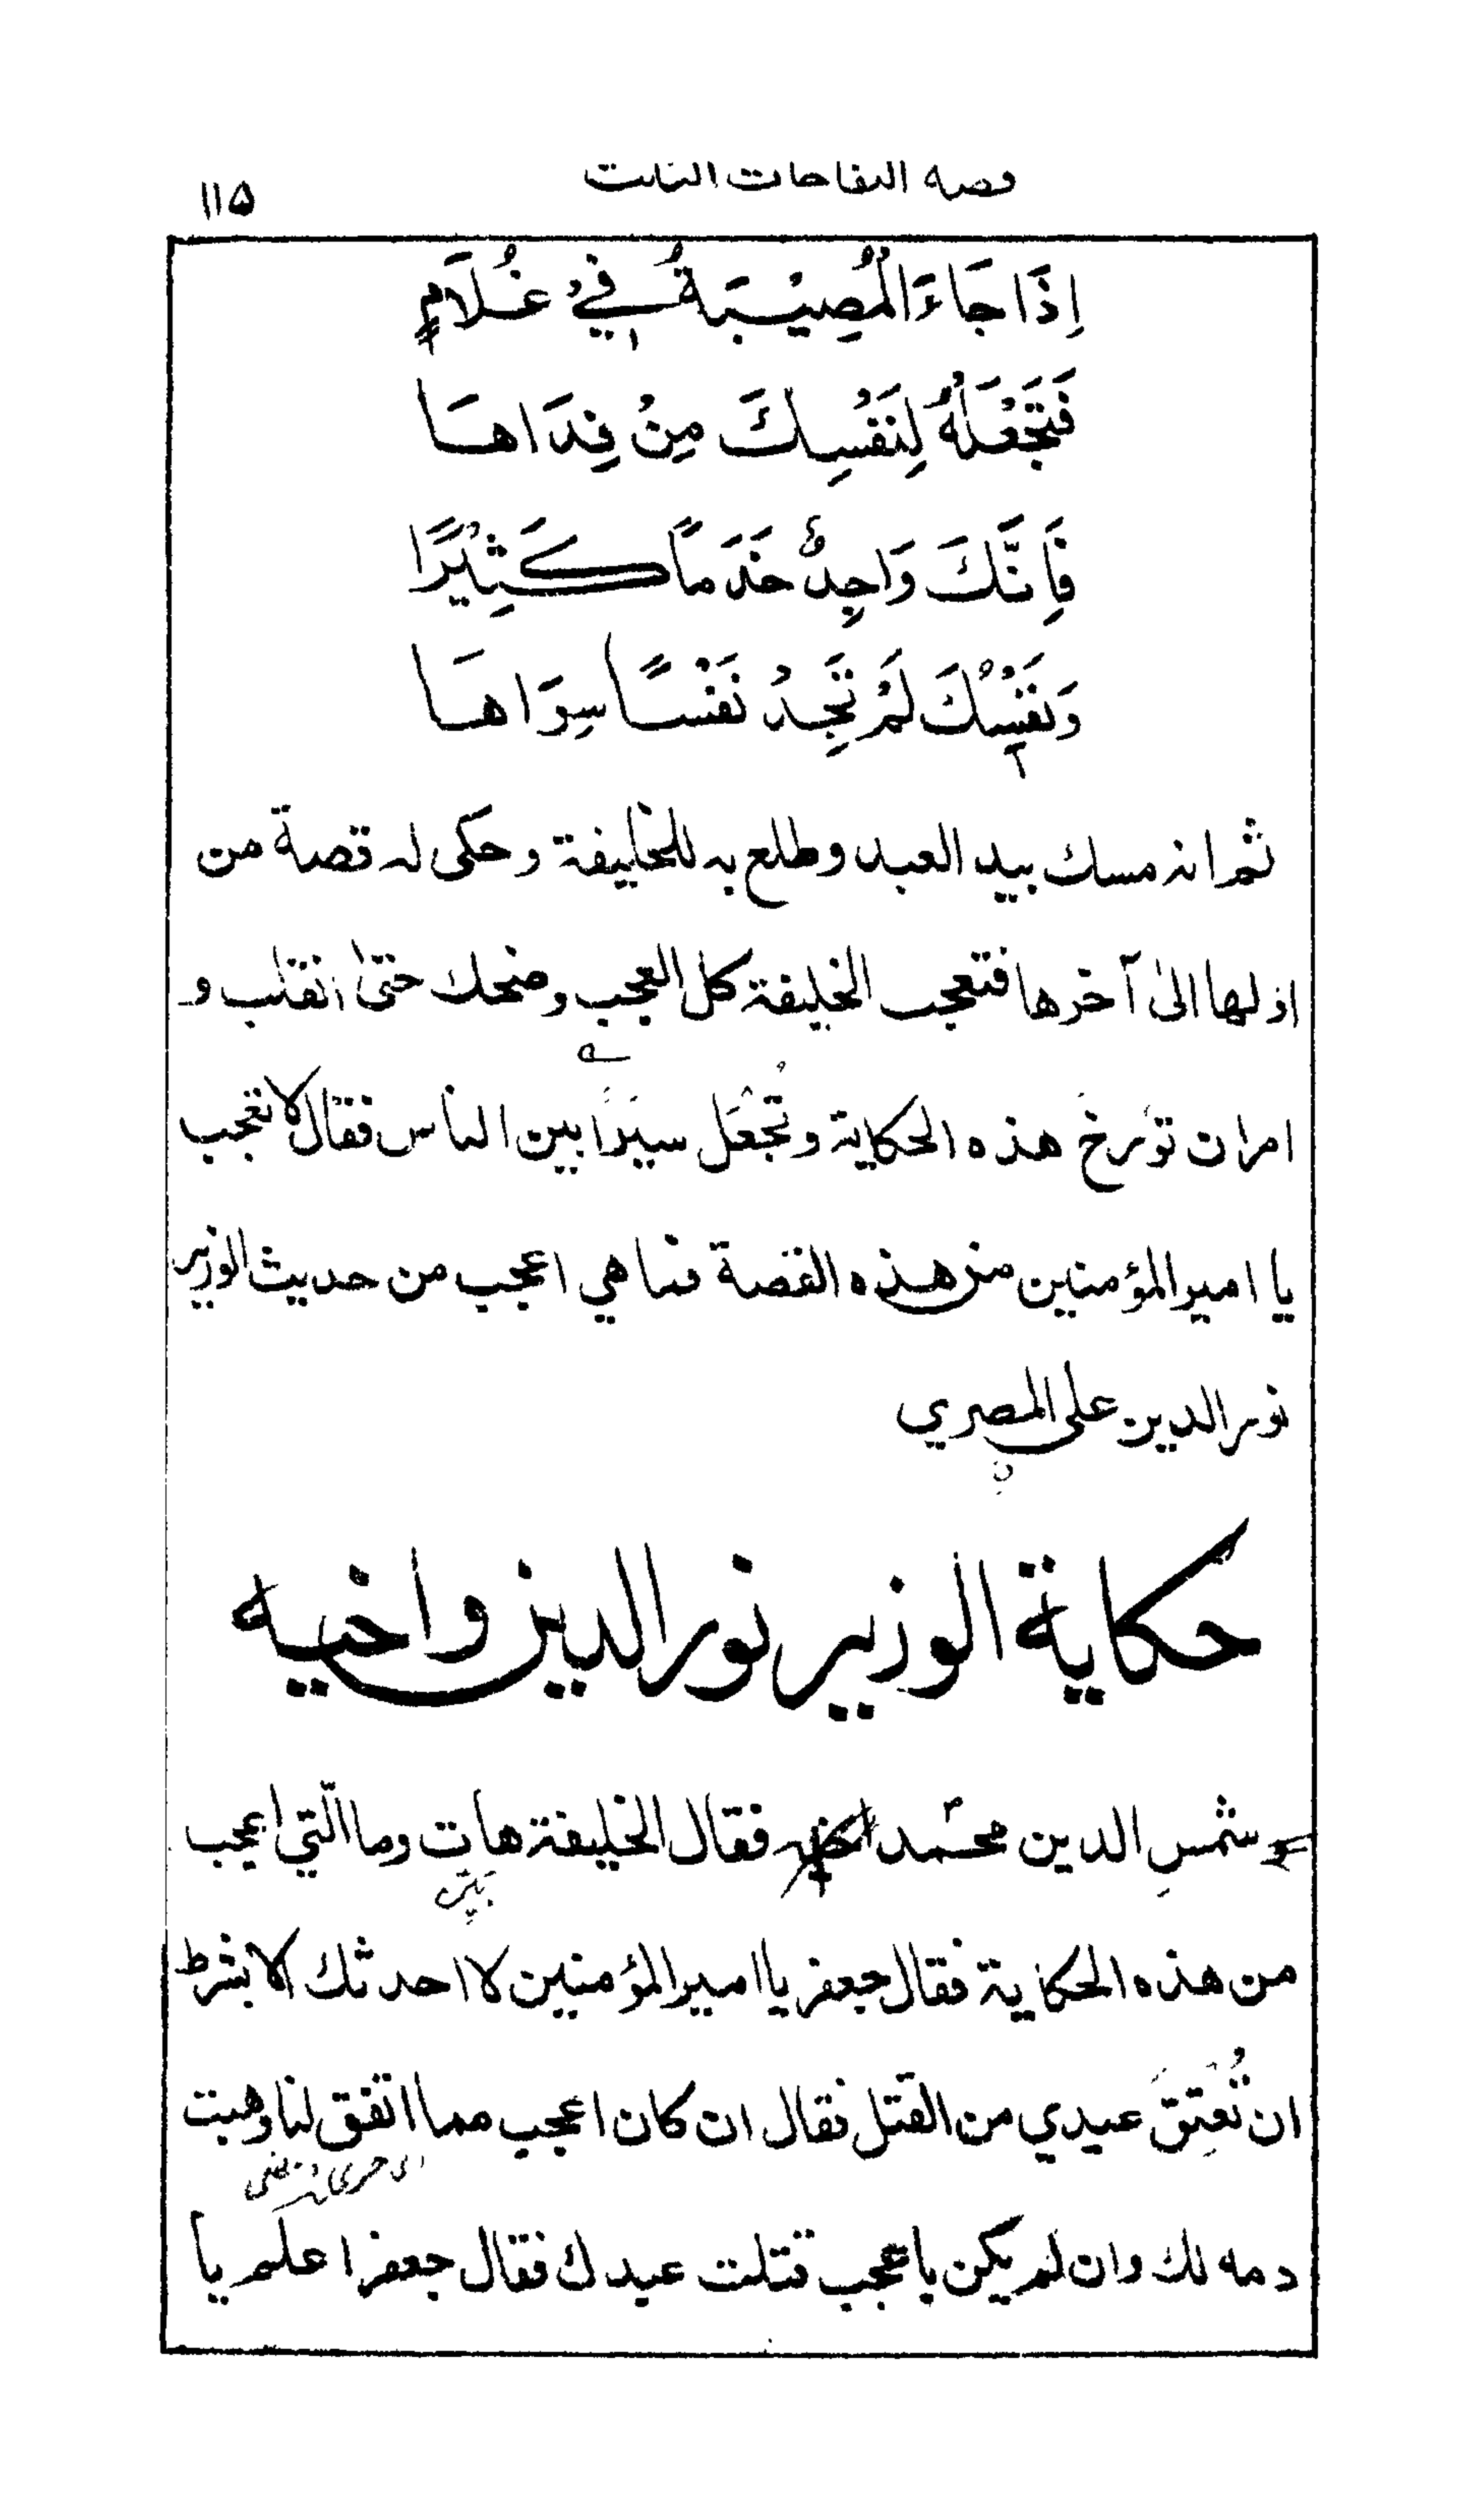 قصه التفاحات الثلث
١١۵
اِذَا جَاءَ الْمُصِيْبَةُ فِيْ غُلَامٍ
فَتَجْعَلُهُ لِنَفْسِكَ مِنْ فِدَاهَا
فَاِنَّكَ وَاجِدٌ خَدَمًا كَثِيْرًا
وَنَفْسُكَ لَمْ تَجِدْ نَفْسًا سِوَاهَا
ثم انه مسك بيد العبد وطلع به للخليفة وحكى له قصة من
اولها الىٰ آخرها فتعجب الخليفة كل العجب وضحك حتىٰ انقلب و
امر ان تؤرخَ هذه الحكاية وتُجْعَل سيَرًا بين الناس فقال لا تعجب
يا امير المؤمنين من هذه القصة فما هي اعجب من حديث الوزير
نور الدين على المصري
حكاية الوزير نور الدين واخيه
شمسِ الدين محمّد فقال الخليفة هات وما الّتي اعجب
من هذه الحكاية فقال جعفر يا امير المؤمنين لا احدثك الا بشرط
ان تُعْتِقَ عبدي من القتل فقال ان كان اعجب مما اتفق لنا وهبت
دمه لك وان لم يكن باعجب قتلت عبدك فقال جعفر اعلم يا